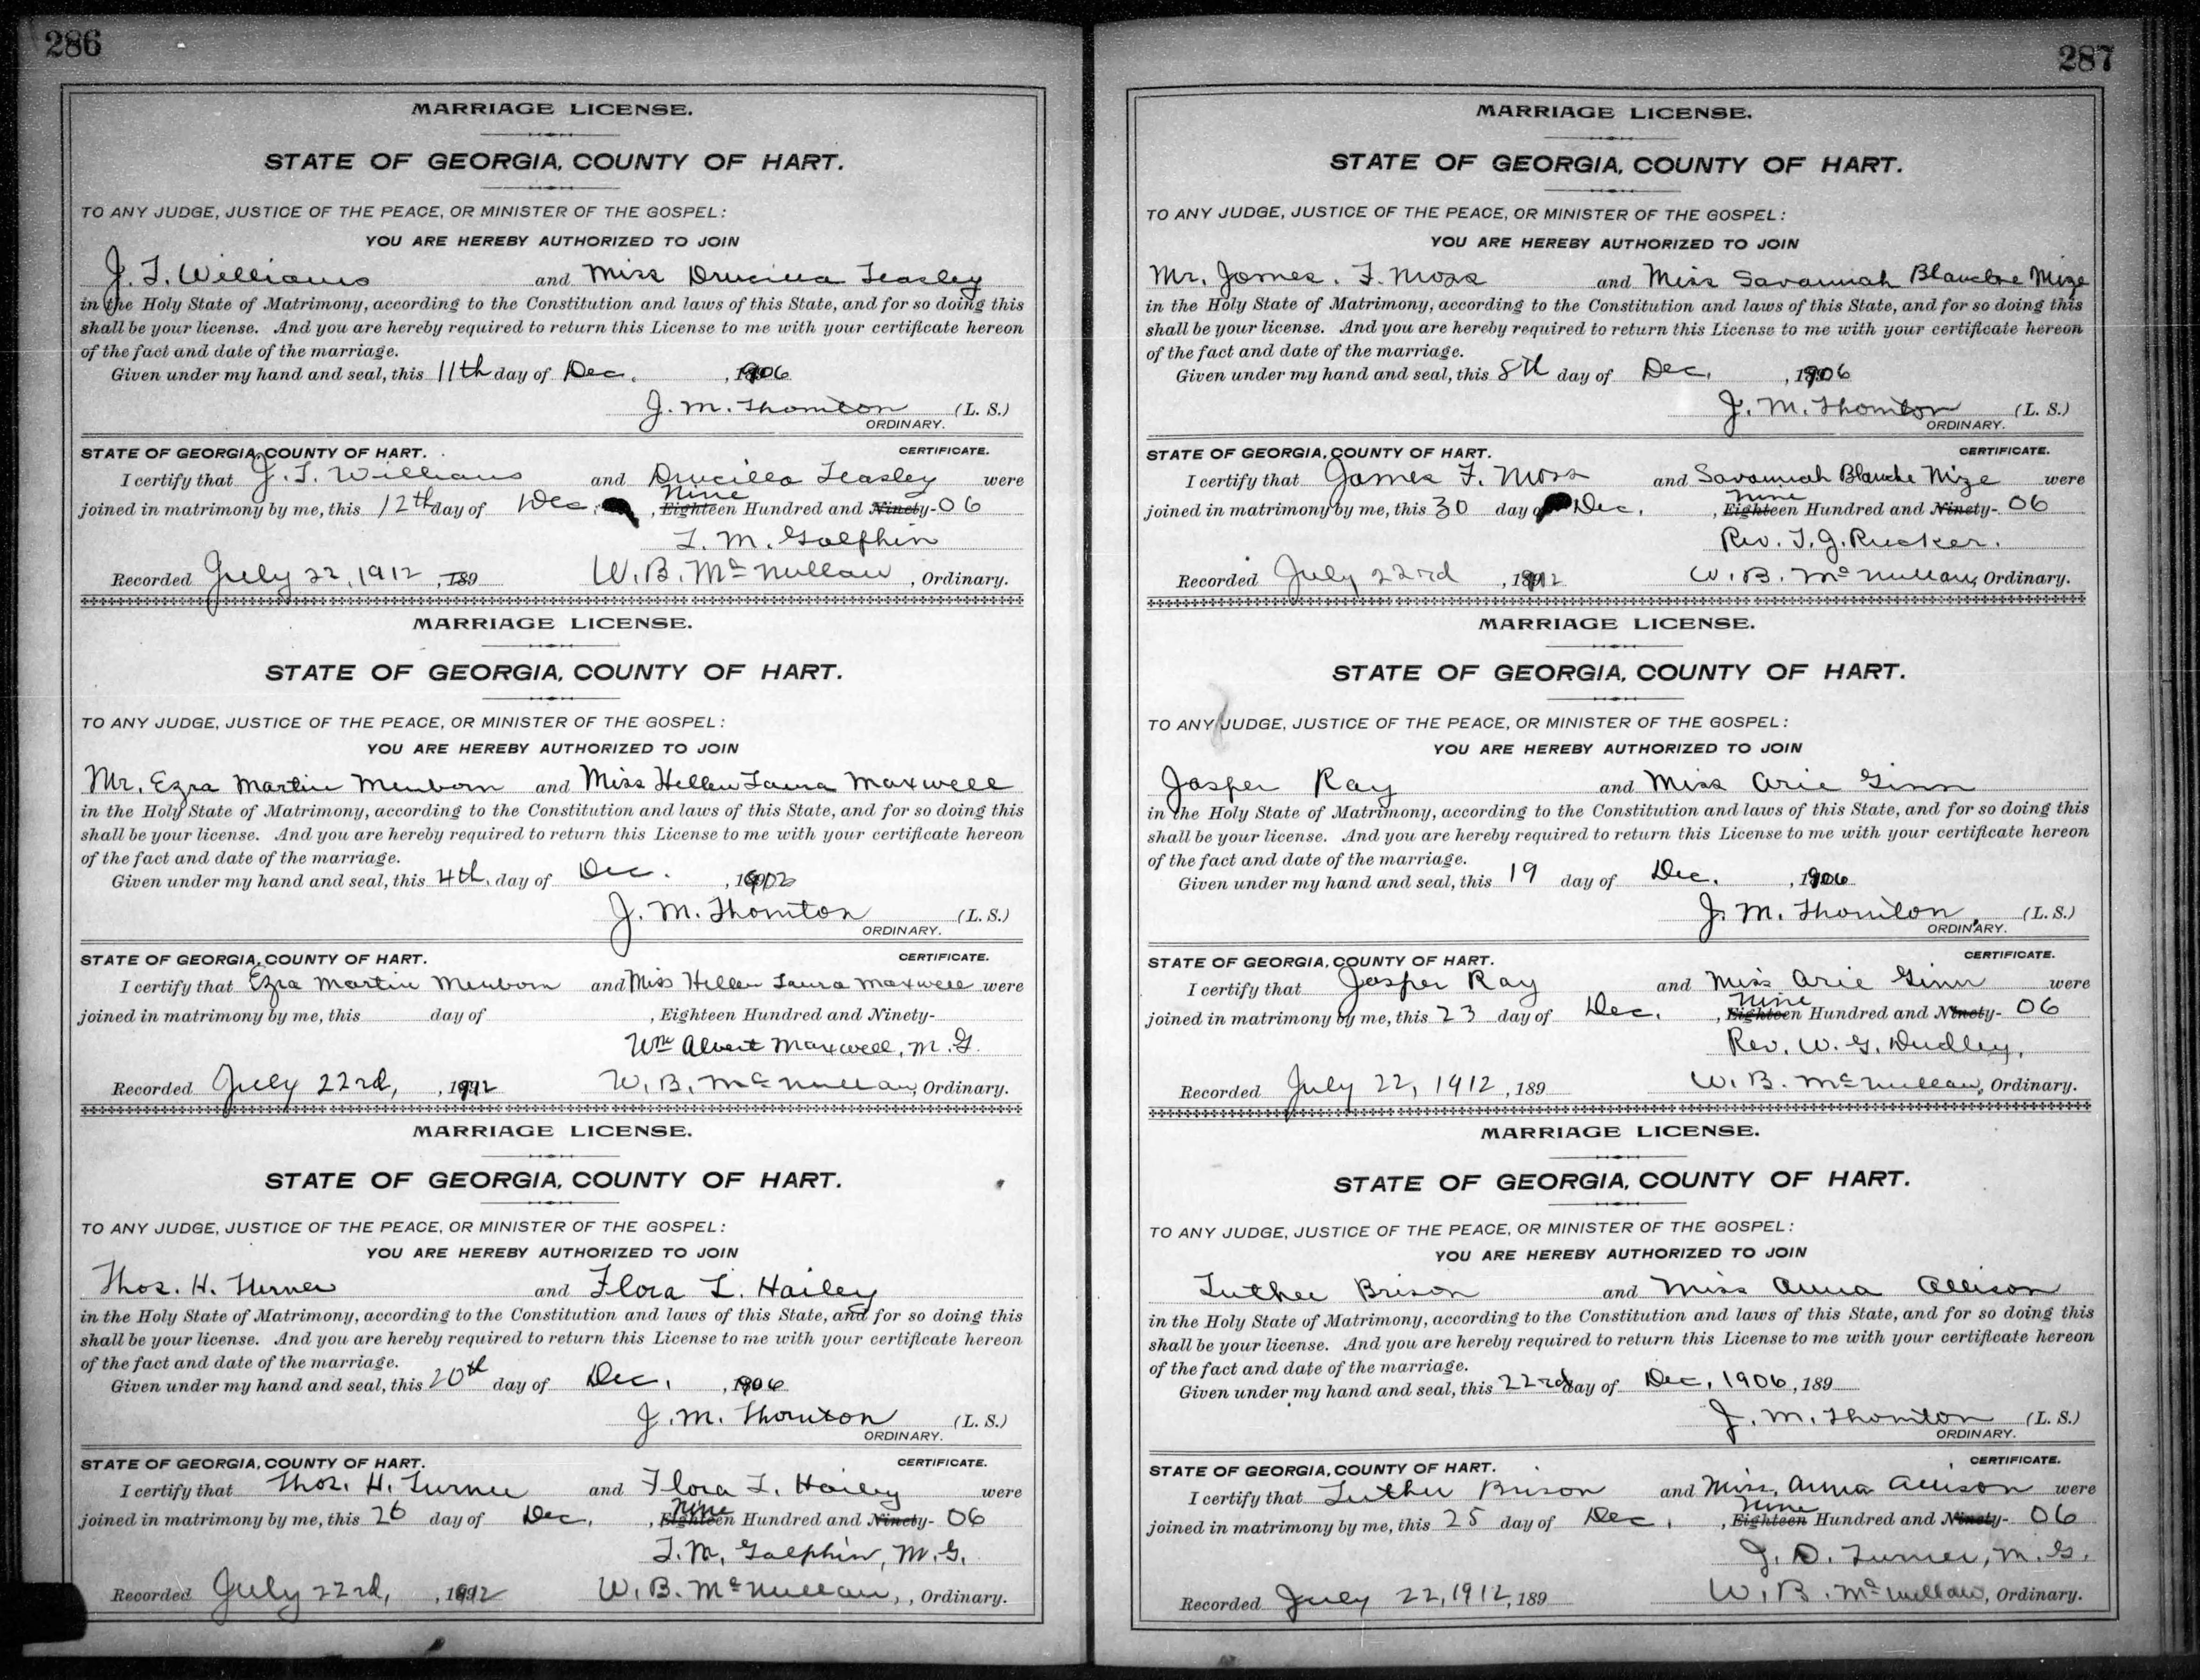 286
MARRIAGE LICENSE.
STATE OF GEORGIA, COUNTY OF HART.
TO ANY JUDGE, JUSTICE OF THE PEACE, OR MINISTER OF THE GOSPEL:
YOU ARE HEREBY AUTHORIZED TO JOIN
J. T. Williams and Miss Drucilla Teasley
in the Holy State of Matrimony, according to the Constitution and laws of this State, and for so doing this
shall be your license. And you are hereby required to return this License to me with your certificate hereon
of the fact and date of the marriage.
Given under my hand and seal, this 11th day of Dec. , 1906
J. M. Thornton (L. S.)
ORDINARY.
STATE OF GEORGIA, COUNTY OF HART. CERTIFICATE.
I certify that J. T. Williams and Drucilla Teasley were
joined in matrimony by me, this 12th day of Dec. , Eighteen Nine Hundred and Ninety- 06
T. M. Galphin
Recorded July 22, 1912 , 189 W. B. McMullan , Ordinary.
MARRIAGE LICENSE.
STATE OF GEORGIA, COUNTY OF HART.
TO ANY JUDGE, JUSTICE OF THE PEACE, OR MINISTER OF THE GOSPEL:
YOU ARE HEREBY AUTHORIZED TO JOIN
Mr. Ezra Martin Menborn and Miss Hellen Laura Maxwell
in the Holy State of Matrimony, according to the Constitution and laws of this State, and for so doing this
shall be your license. And you are hereby required to return this License to me with your certificate hereon
of the fact and date of the marriage.
Given under my hand and seal, this 4th. day of Dec. , 1902
J. M. Thornton (L. S.)
ORDINARY.
STATE OF GEORGIA, COUNTY OF HART. CERTIFICATE.
I certify that Ezra Martin Menborn and Miss Hellen Laura Maxwell were
joined in matrimony by me, this day of , Eighteen Hundred and Ninety-
Wm Albert Maxwell, M. G.
Recorded July 22rd, , 1912 W. B. McMullan, Ordinary.
MARRIAGE LICENSE.
STATE OF GEORGIA, COUNTY OF HART.
TO ANY JUDGE, JUSTICE OF THE PEACE, OR MINISTER OF THE GOSPEL:
YOU ARE HEREBY AUTHORIZED TO JOIN
Thos. H. Turner and Flora L. Hailey
in the Holy State of Matrimony, according to the Constitution and laws of this State, and for so doing this
shall be your license. And you are hereby required to return this License to me with your certificate hereon
of the fact and date of the marriage.
Given under my hand and seal, this 20th day of Dec. , 1906
J. M. Thornton (L. S.)
ORDINARY.
STATE OF GEORGIA, COUNTY OF HART. CERTIFICATE.
I certify that Thos. H. Turner and Flora L. Hailey were
joined in matrimony by me, this 26 day of Dec. , Eighteen Nine Hundred and Ninety- 06
T. M. Galphin, M. G.
Recorded July 22rd, , 1912 W. B. McMullan, , Ordinary.
287
MARRIAGE LICENSE.
STATE OF GEORGIA, COUNTY OF HART.
TO ANY JUDGE, JUSTICE OF THE PEACE, OR MINISTER OF THE GOSPEL:
YOU ARE HEREBY AUTHORIZED TO JOIN
Mr. James. F. Moss and Miss Savannah Blanche Mize
in the Holy State of Matrimony, according to the Constitution and laws of this State, and for so doing this
shall be your license. And you are hereby required to return this License to me with your certificate hereon
of the fact and date of the marriage.
Given under my hand and seal, this 8th day of Dec. , 1906
J. M. Thornton (L. S.)
ORDINARY.
STATE OF GEORGIA, COUNTY OF HART. CERTIFICATE.
I certify that James F. Moss and Savannah Blanche Mize were
joined in matrimony by me, this 30 day of Dec. , Eighteen Nine Hundred and Ninety- 06
Rev. T. J. Rucker.
Recorded July 23rd , 1912 W. B. McMullan, Ordinary.
MARRIAGE LICENSE.
STATE OF GEORGIA, COUNTY OF HART.
TO ANY JUDGE, JUSTICE OF THE PEACE, OR MINISTER OF THE GOSPEL:
YOU ARE HEREBY AUTHORIZED TO JOIN
Jasper Ray and Miss Arie Ginn
in the Holy State of Matrimony, according to the Constitution and laws of this State, and for so doing this
shall be your license. And you are hereby required to return this License to me with your certificate hereon
of the fact and date of the marriage.
Given under my hand and seal, this 19 day of Dec. , 1906
J. M. Thornton, (L. S.)
ORDINARY.
STATE OF GEORGIA, COUNTY OF HART. CERTIFICATE.
I certify that Jasper Ray and Miss Arie Ginn were
joined in matrimony by me, this 23 day of Dec. , Eighteen Nine Hundred and Ninety- 06
Rev. W. G. Dudley.
Recorded July 22, 1912 , 189 W. B. McMullan, Ordinary.
MARRIAGE LICENSE.
STATE OF GEORGIA, COUNTY OF HART.
TO ANY JUDGE, JUSTICE OF THE PEACE, OR MINISTER OF THE GOSPEL:
YOU ARE HEREBY AUTHORIZED TO JOIN
Luther Brison and Miss Anna Allison
in the Holy State of Matrimony, according to the Constitution and laws of this State, and for so doing this
shall be your license. And you are hereby required to return this License to me with your certificate hereon
of the fact and date of the marriage.
Given under my hand and seal, this 22rd day of Dec, 1906 , 189
J. M. Thornton (L. S.)
ORDINARY.
STATE OF GEORGIA, COUNTY OF HART. CERTIFICATE.
I certify that Luther Brison and Miss. Anna Allison were
joined in matrimony by me, this 25 day of Dec. , Eighteen Nine Hundred and Ninety- 06
J. D. Turner, M. G.
Recorded July 22, 1912, 189 W. B. McMullan, Ordinary.